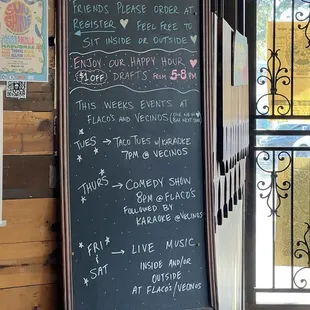 FRIENDS PLEASE ORDER AT
REGISTER FEEL FREE TO
SIT INSIDE OR OUTSIDE
ENJOY OUR HAPPY HOUR
$1 OFF DRAFTS FROM 5-8PM
THIS WEEKS EVENTS AT
FLACOS AND VECINOS
TUES → TACO TUES W/KARAOKE
7PM @ VECINOS
THURS → COMEDY SHOW
8PM @ FLACO'S
FOLLOWED BY
KARAOKE @VECINOS
FRI
&
SAT
→ LIVE MUSIC
INSIDE AND/OR
OUTSIDE
AT FLACO'S/VECINOS